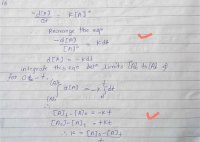 -d[A]/dt = K[A]°
Rearrange the eqn
-d[A]/[A]° = Kdt
d[A] = -Kdt
integrate this eqn betn limits [A]₀ to [A]t
for 0 to t.
∫ d[A] = -K ∫ dt
∴ [A]t - [A]₀ = -Kt
[A]₀ - [A]t = +Kt
∴ K = [A]₀ - [A]t